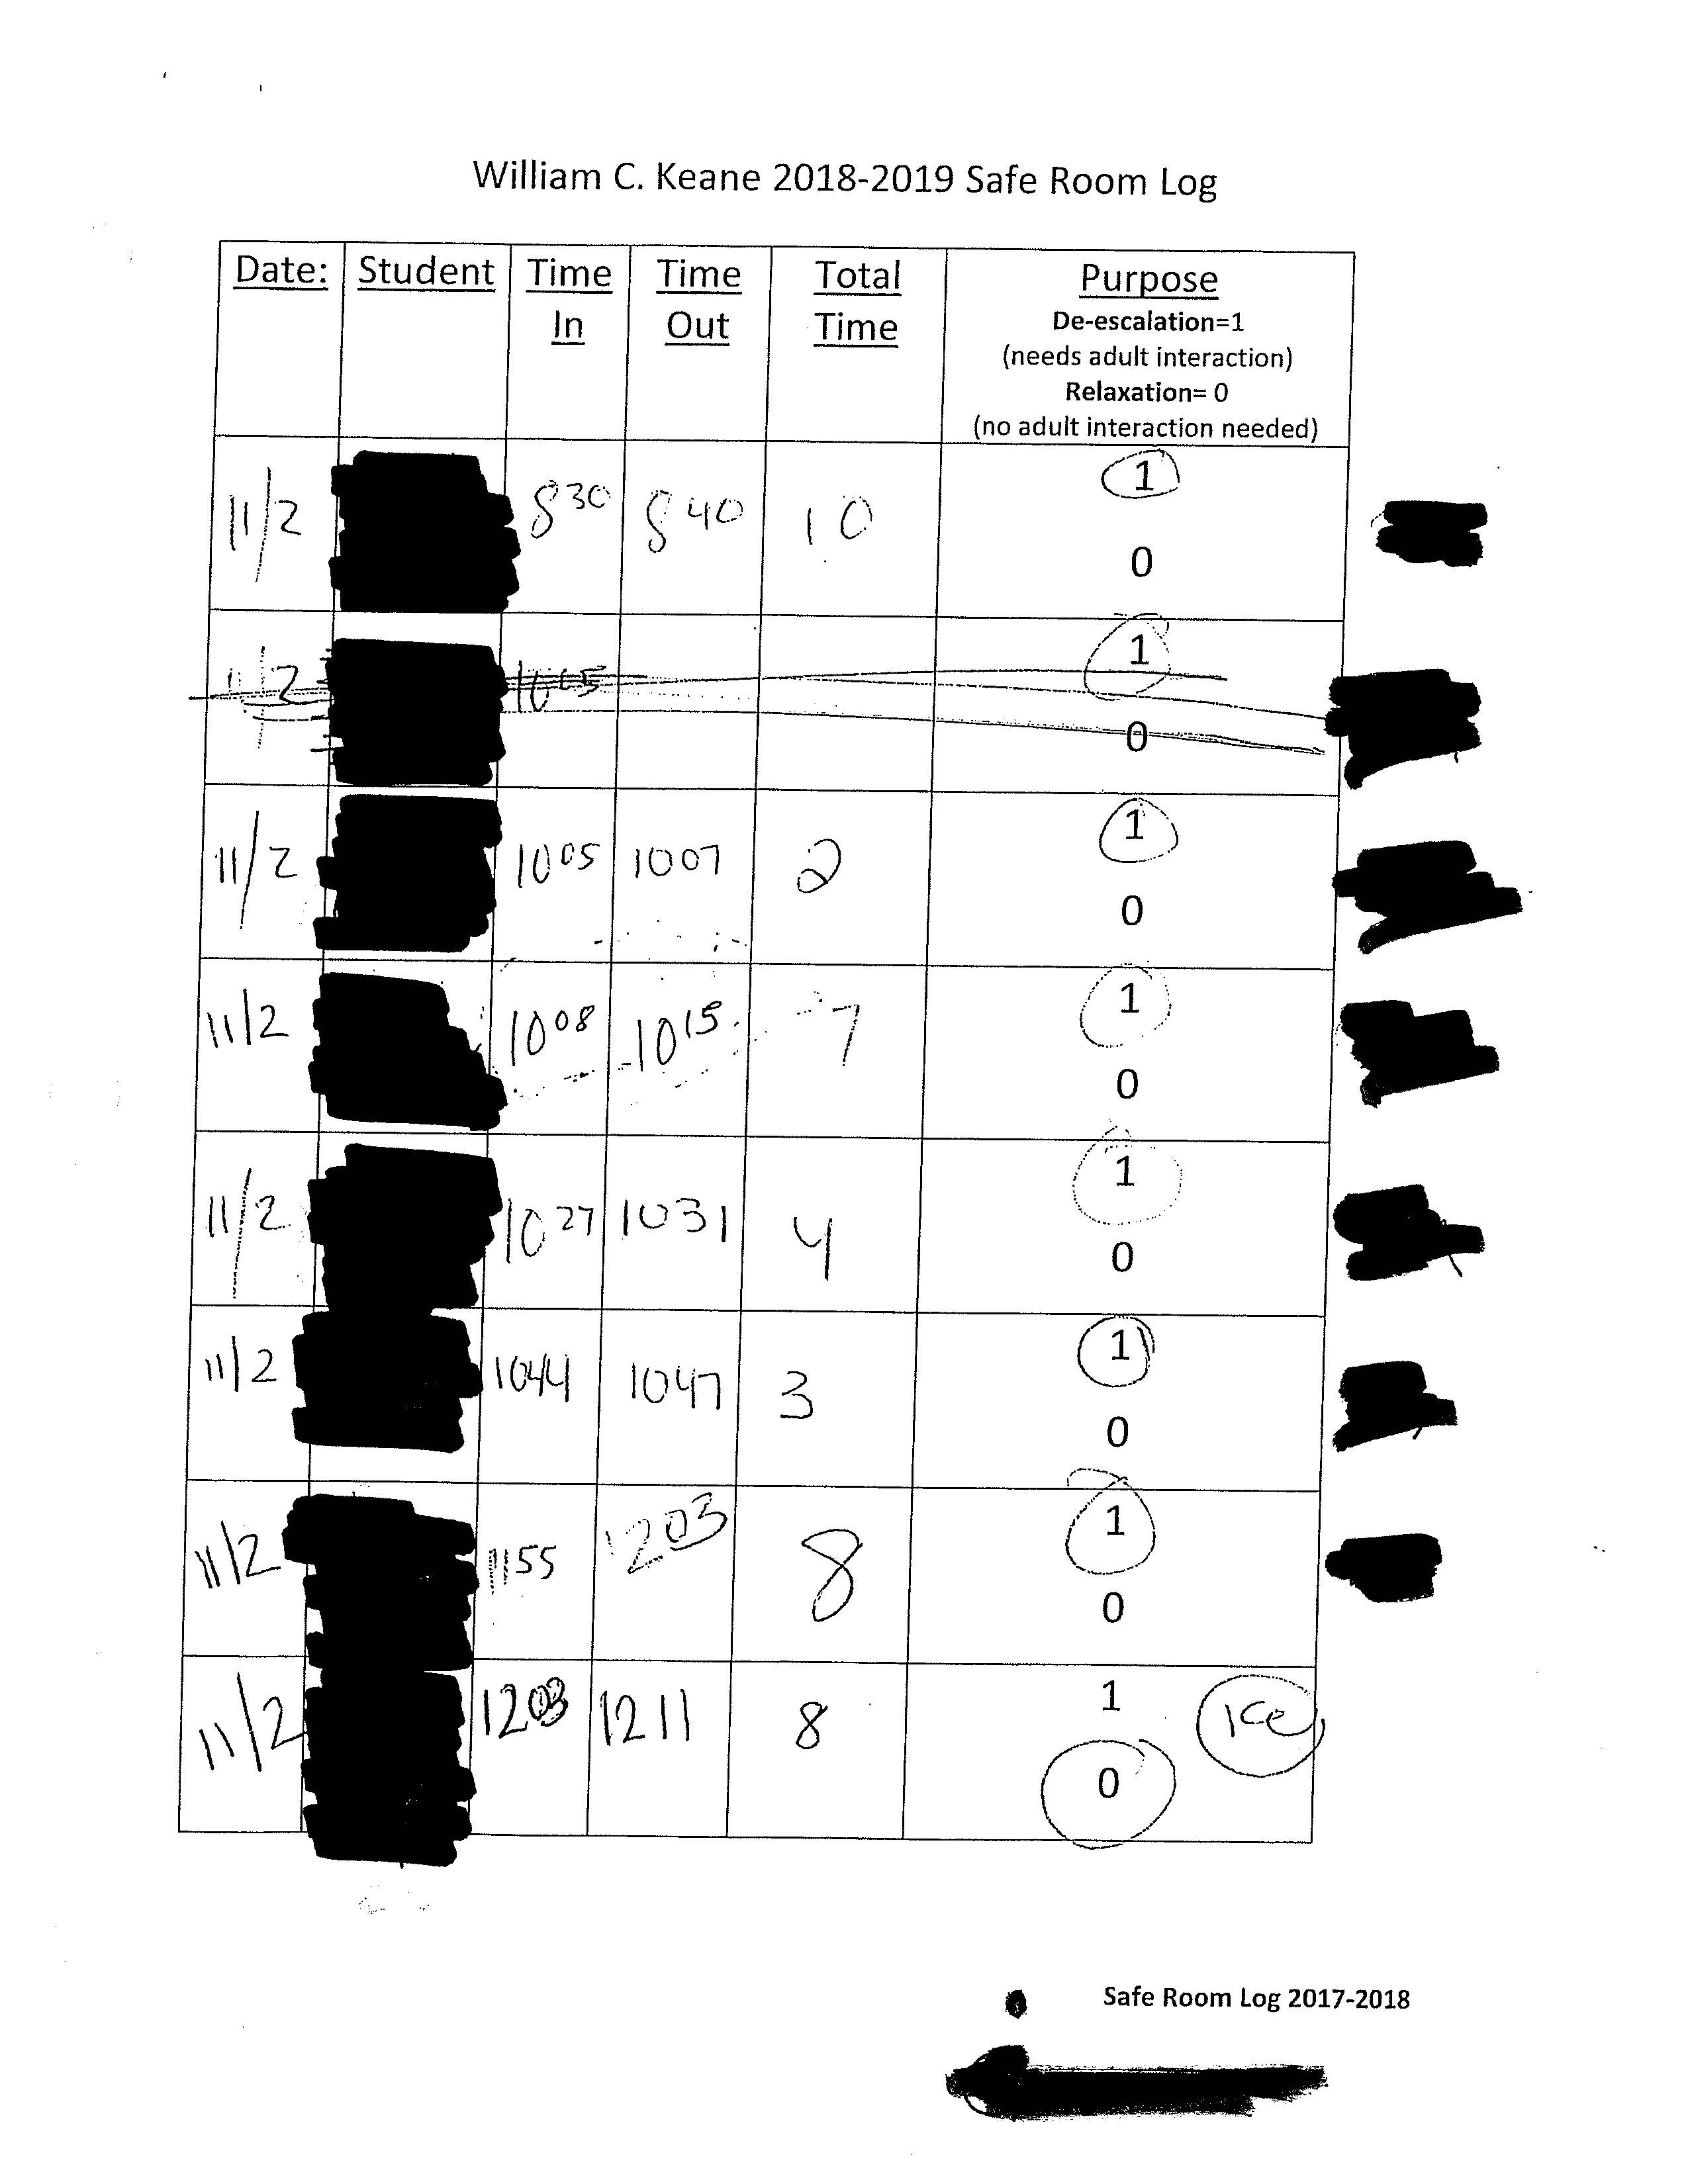 William C. Keane 2018-2019 Safe Room Log
Date: Student Time In Time Out Total Time Purpose
De-escalation=1
(needs adult interaction)
Relaxation= 0
(no adult interaction needed)
11/2 8 30 8 40 10 1
0
11/2 10 05 1
0
11/2 10 05 1007 2 1
0
11/2 10 08 10 15 7 1
0
11/2 10 27 1031 4 1
0
11/2 1044 1047 3 1
0
11/2 1155 1203 8 1
0
11/2 1203 1211 8 1
0
Safe Room Log 2017-2018